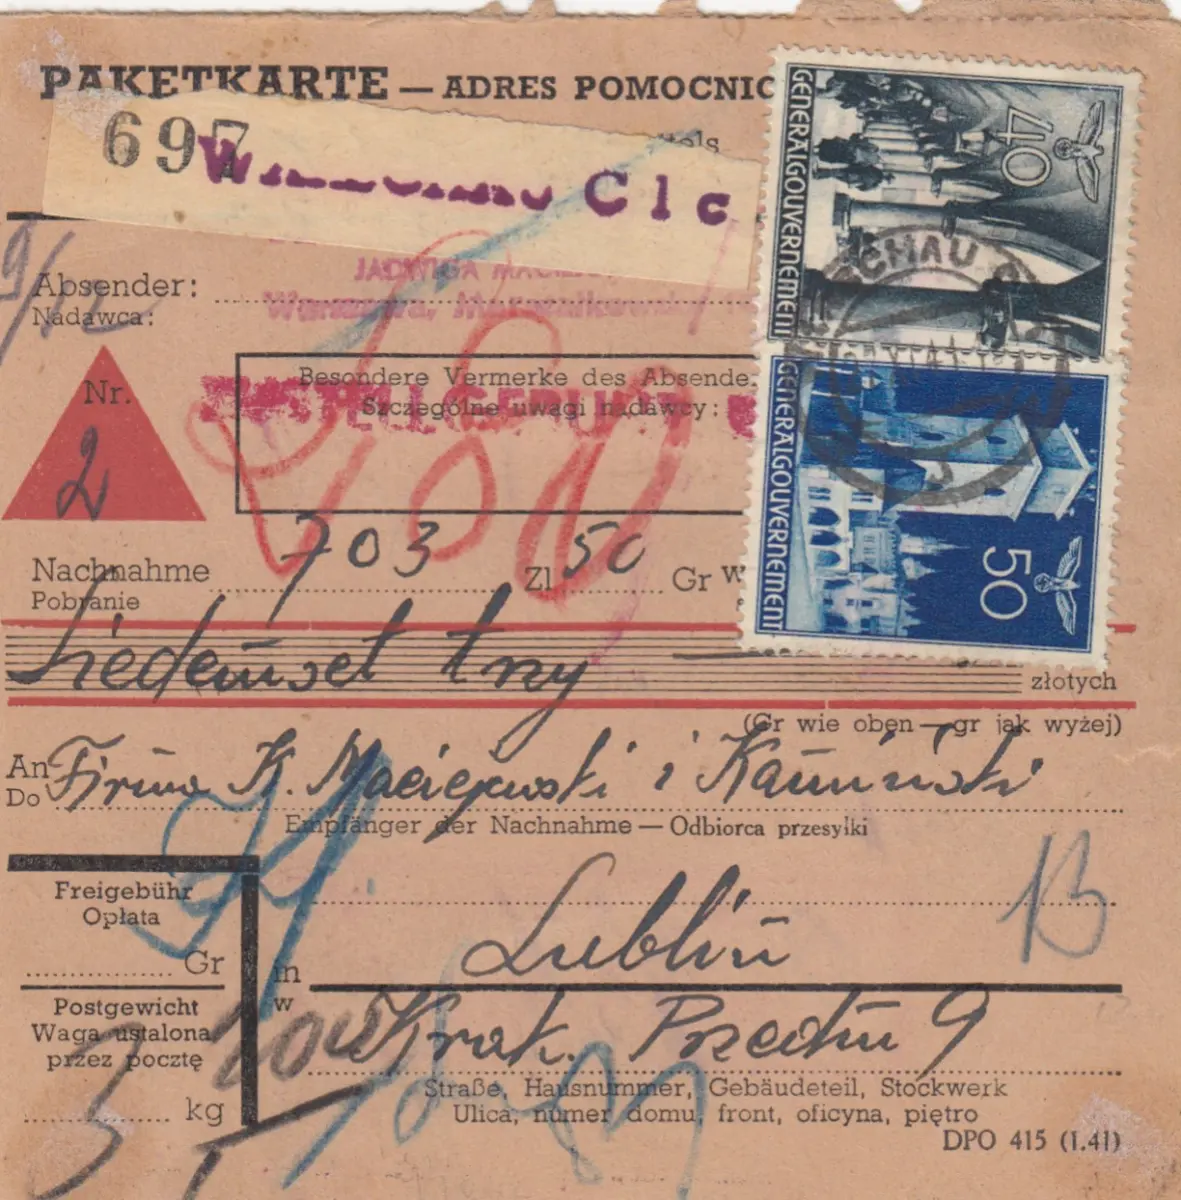 PAKETKARTE — ADRES POMOCNIC
697
C1c
GENERALGOUVERNEMENT
40
Absender:
Nadawca:
JADWIGA
Warszawa, Marszałkowska
Nr.
2
Besondere Vermerke des Absende
Szczególne uwagi nadawcy:
GENERALGOUVERNEMENT
50
Nachnahme 703 Zl 50 Gr w
Pobranie
siedemset trzy —
złotych
(Gr wie oben — gr jak wyżej)
An Firma K. Maciejewski i Kamiński
Do
Empfänger der Nachnahme — Odbiorca przesyłki
Freigebühr
Opłata
Gr
B
in Lublin
w
Postgewicht
Waga ustalona
przez pocztę
5 kg
Krak. Przedm 9
Straße, Hausnummer, Gebäudeteil, Stockwerk
Ulica, numer domu, front, oficyna, piętro
DPO 415 (1.41)